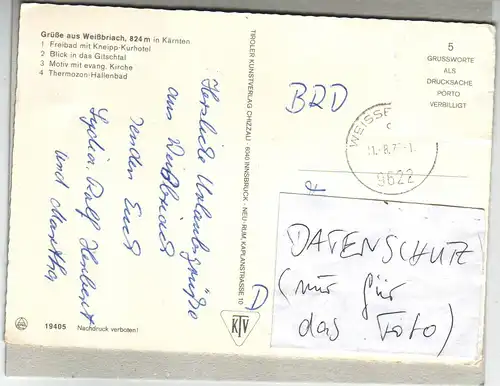 Grüße aus Weißbriach, 824 m in Kärnten
1 Freibad mit Kneipp-Kurhotel
2 Blick in das Gitschtal
3 Motiv mit evang. Kirche
4 Thermozon-Hallenbad
Herzliche Urlaubsgrüße
aus Weißbriach
senden Euch
Lydia, Ralf, Herbert
und Martha
19405 Nachdruck verboten!
TIROLER KUNSTVERLAG CHIZZALI · 6040 INNSBRUCK - NEU-RUM, KAPLANSTRASSE 10
KTV
5
GRUSSWORTE
ALS
DRUCKSACHE
PORTO
VERBILLIGT
BRD
WEISSB
9622
D
DATENSCHUTZ
(nur für
das Foto)